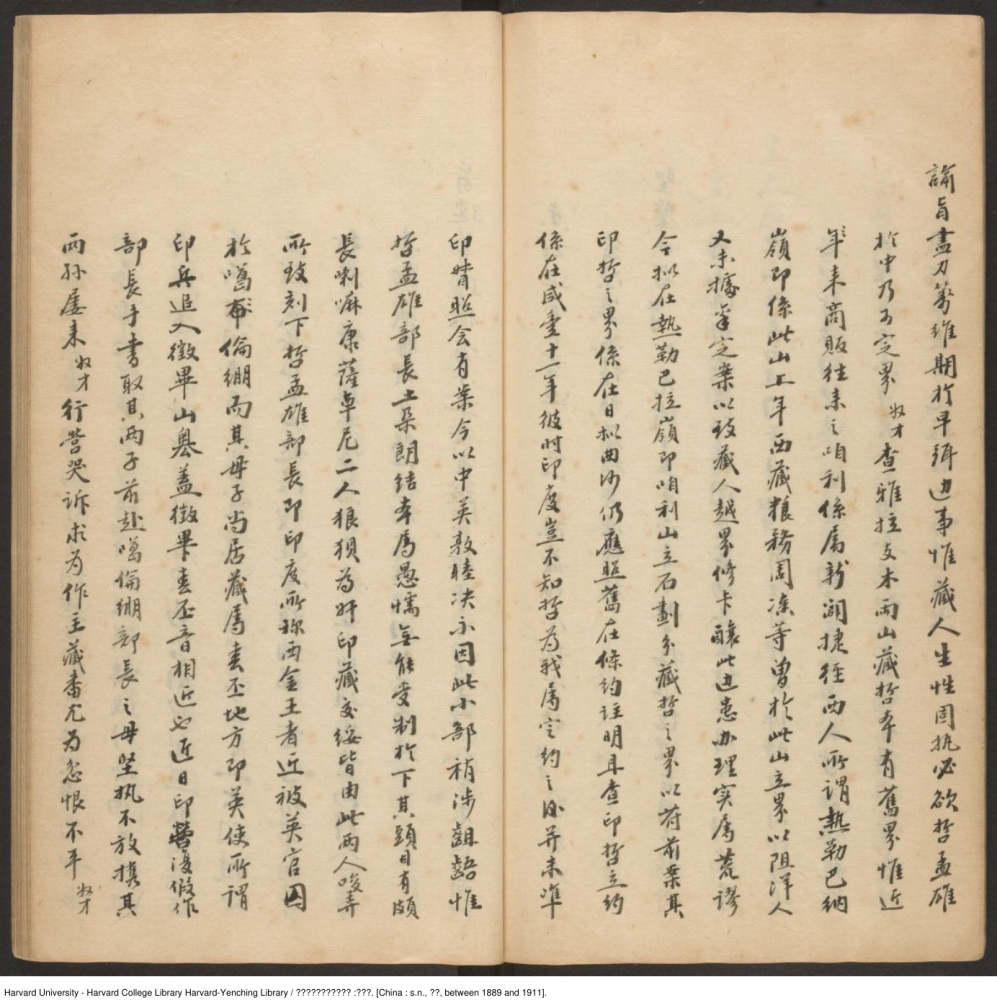 諭旨盡力籌維期於早弭边事惟藏人生性固执必欲哲孟雄
於中乃可定界奴才查雅拉支木兩山藏哲本有舊界惟近
年来商販往来之咱利係属新闢捷径西人所謂熱勒巴納
嶺即係此山上年西藏粮務周溱等曾於此山立界以阻洋人
又未據奏定案以致藏人越界修卡釀此边患办理实属荒谬
今拟在熱勒巴拉嶺即咱利山立石劃分藏哲之界以符前案其
印哲之界係在日拟曲河仍應照舊在條約註明且查印哲立約
係在咸豊十一年彼时印度豈不知哲为我属定約之後并未準
印督照会有案今以中英敦睦决不因此小部稍涉齟齬惟
哲孟雄部長土朶朗结本属愚懦無能受制於下其頭目有頗
長喇嘛康薩卓尼二人狼狽为奸印藏交綏皆由此两人唆弄
所致刻下哲孟雄部長即印度所称西金王者近被英官囚
於噶倫绷而其母子尚居藏属春丕地方即英使所謂
印兵追入徵畢山奥盖徵畢春丕音相近也近日印營復假作
部長手書取其两子前赴噶倫绷部長之母坚执不放携其
两孙屡来奴才行营哭诉求为作主藏番尤为忿恨不平奴才
Harvard University - Harvard College Library Harvard-Yenching Library / ??????????? :???. [China : s.n., ??, between 1889 and 1911].